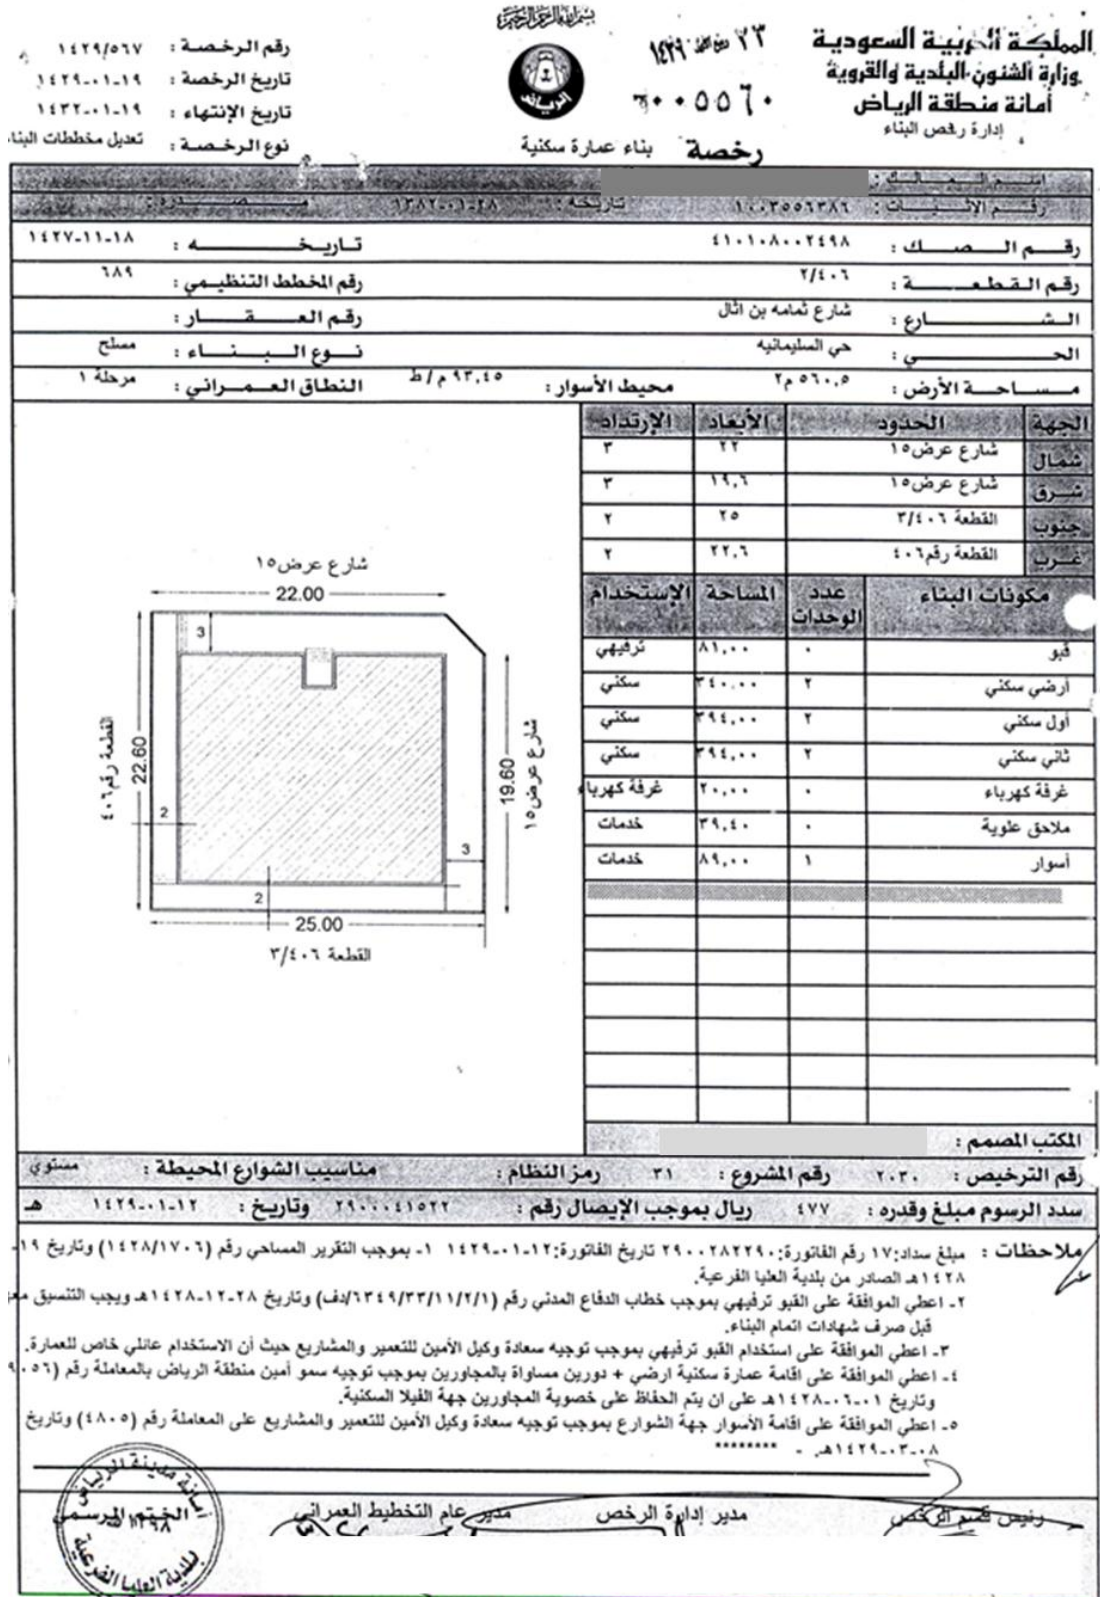 بسم الله الرحمن الرحيم
المملكة العربية السعودية
وزارة الشئون البلدية والقروية
أمانة منطقة الرياض
إدارة رخص البناء
٠٠٥٥٦٠
الرياض
رخصة بناء عمارة سكنية
رقم الرخصة : ١٤٢٩/٥٦٧
تاريخ الرخصة : ١٤٢٩-٠١-١٩
تاريخ الإنتهاء : ١٤٣٢-٠١-١٩
نوع الرخصة : تعديل مخططات البناء
اسم المالك :
رقم الاثبات : ١٠٠٣٥٥٦٣٨٦ تاريخه : ١٣٨٢-٠١-٢٨ مصدره :
رقم الصك : ٤١٠١٠٨٠٠٢٤٩٨ تاريخه : ١٤٢٧-١١-١٨
رقم القطعة : ٢/٤٠٦ رقم المخطط التنظيمي : ٦٨٩
الشارع : شارع ثمامه بن اثال رقم العقار :
الحي : حي السليمانيه نوع البناء : مسلح
مساحة الأرض : ٥٦٠,٥ م٢ محيط الأسوار : ٩٣,٤٥ م/ط النطاق العمراني : مرحلة ١
الجهة الحدود الأبعاد الإرتداد
شمال شارع عرض١٥ ٢٢ ٣
شرق شارع عرض١٥ ١٩,٦ ٣
جنوب القطعة ٣/٤٠٦ ٢٥ ٢
غرب القطعة رقم٤٠٦ ٢٢,٦ ٢
مكونات البناء عدد الوحدات المساحة الإستخدام
قبو ٠ ٨١,٠٠ ترفيهي
أرضي سكني ٢ ٣٤٠,٠٠ سكني
أول سكني ٢ ٣٩٤,٠٠ سكني
ثاني سكني ٢ ٣٩٤,٠٠ سكني
غرفة كهرباء ٠ ٢٠,٠٠ غرفة كهرباء
ملاحق علوية ٠ ٣٩,٤٠ خدمات
أسوار ١ ٨٩,٠٠ خدمات
شارع عرض١٥
22.00
3
القطعة رقم٤٠٦
22.60
2
19.60
شارع عرض١٥
3
2
25.00
القطعة ٣/٤٠٦
المكتب المصمم :
رقم الترخيص : ٢٠٣٠ رقم المشروع : ٣١ رمز النظام : مناسيب الشوارع المحيطة : مستوي
سدد الرسوم مبلغ وقدره : ٤٧٧ ريال بموجب الإيصال رقم : ٢٩٠٠٠٤١٥٢٢ وتاريخ : ١٤٢٩-٠١-١٢ هـ
ملاحظات : مبلغ سداد:١٧ رقم الفاتورة:٢٩٠٠٢٨٢٢٩٠ تاريخ الفاتورة:١٢-٠١-١٤٢٩ ١- بموجب التقرير المساحي رقم (١٤٢٨/١٧٠٦) وتاريخ ١٩-
١٤٢٨هـ الصادر من بلدية العليا الفرعية.
٢- اعطي الموافقة على القبو ترفيهي بموجب خطاب الدفاع المدني رقم (٦٣٤٩/٣٣/١١/٢/١/دف) وتاريخ ٢٨-١٢-١٤٢٨هـ ويجب التنسيق
قبل صرف شهادات اتمام البناء.
٣- اعطي الموافقة على استخدام القبو ترفيهي بموجب توجيه سعادة وكيل الأمين للتعمير والمشاريع حيث أن الاستخدام عائلي خاص للعمارة.
٤- اعطي الموافقة على اقامة عمارة سكنية ارضي + دورين مساواة بالمجاورين بموجب توجيه سمو أمين منطقة الرياض بالمعاملة رقم
وتاريخ ٠١-٠٦-١٤٢٨هـ على ان يتم الحفاظ على خصوية المجاورين جهة الفيلا السكنية.
٥- اعطي الموافقة على اقامة الأسوار جهة الشوارع بموجب توجيه سعادة وكيل الأمين للتعمير والمشاريع على المعاملة رقم (٤٨٠٥) وتاريخ
٠٨-٠٣-١٤٢٩هـ. - ********
رئيس قسم الرخص مدير إدارة الرخص مدير عام التخطيط العمراني الختم الرسمي
أمانة مدينة الرياض
بلدية العليا الفرعية